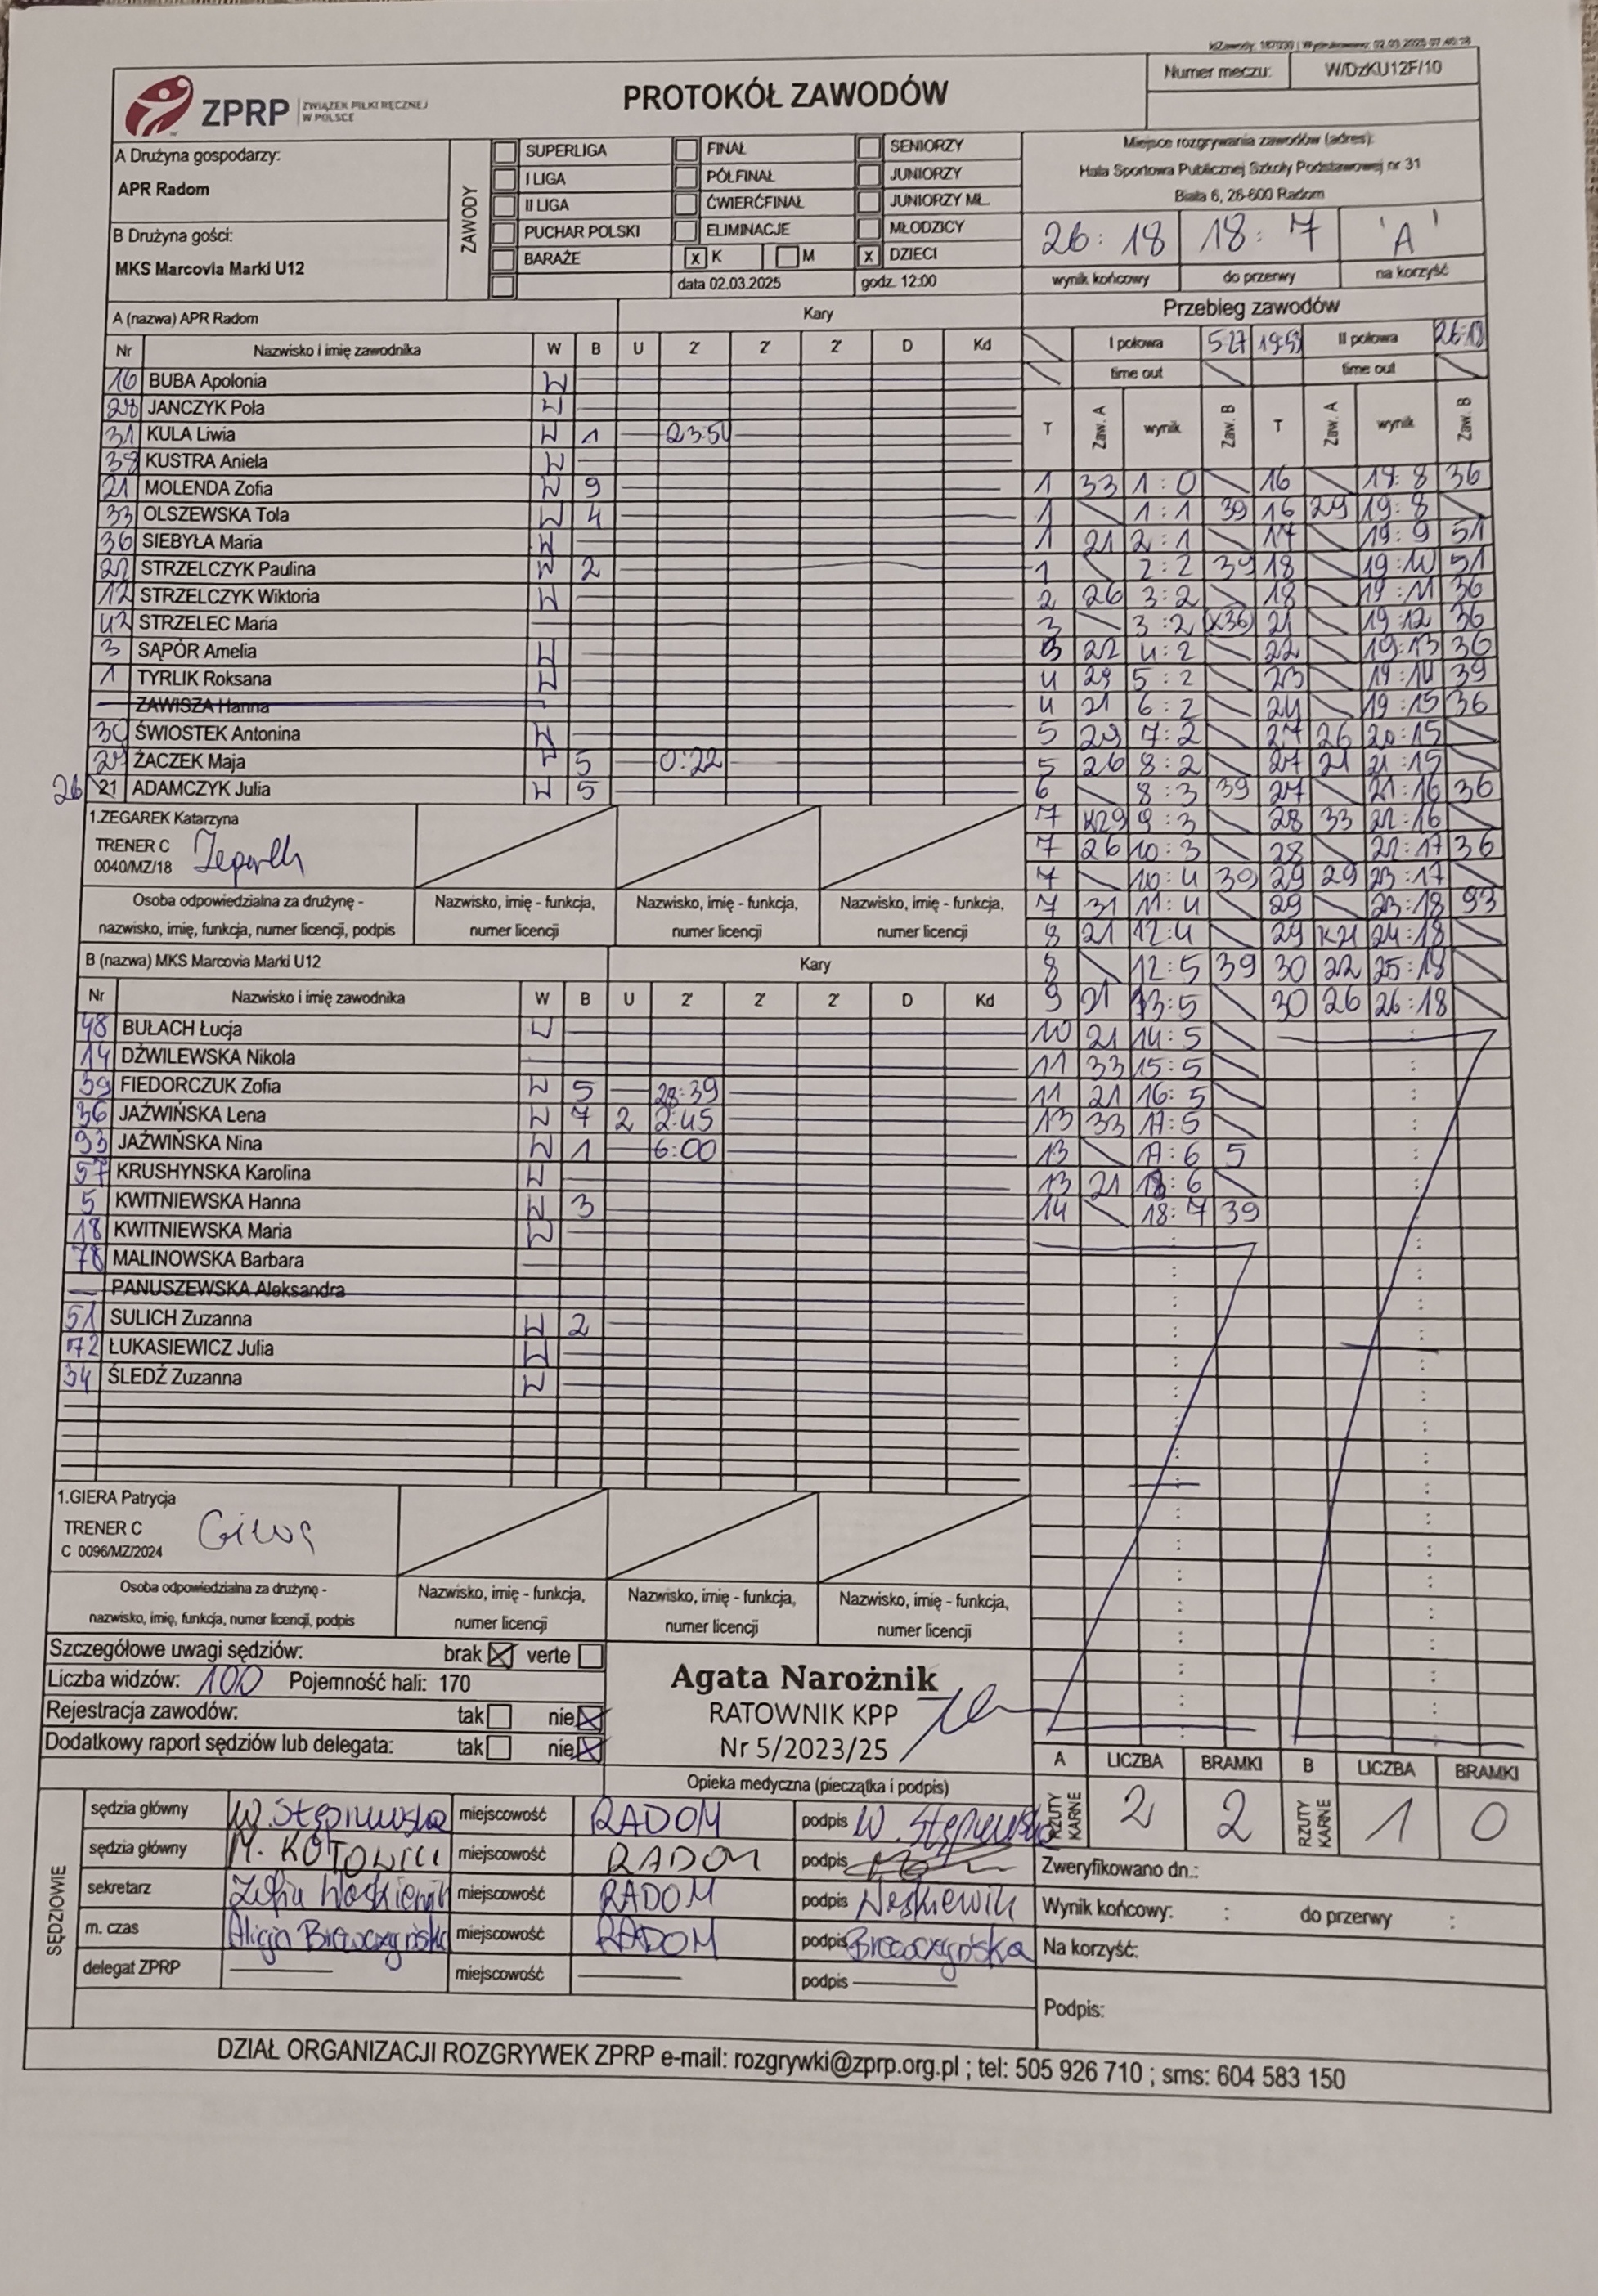 IdZawody: 187030 | Wydrukowano: 02.03.2025 07:40:18
ZPRP ZWIĄZEK PIŁKI RĘCZNEJ W POLSCE
PROTOKÓŁ ZAWODÓW
Numer meczu: W/DzKU12F/10
A Drużyna gospodarzy:
APR Radom
B Drużyna gości:
MKS Marcovia Marki U12
ZAWODY
SUPERLIGA FINAŁ SENIORZY
I LIGA PÓŁFINAŁ JUNIORZY
II LIGA ĆWIERĆFINAŁ JUNIORZY MŁ.
PUCHAR POLSKI ELIMINACJE MŁODZICY
BARAŻE x K M x DZIECI
data 02.03.2025 godz. 12:00
Miejsce rozgrywania zawodów (adres):
Hala Sportowa Publicznej Szkoły Podstawowej nr 31
Biała 6, 26-600 Radom
26:18 18:7 'A'
wynik końcowy do przerwy na korzyść
A (nazwa) APR Radom Kary
Nr Nazwisko i imię zawodnika W B U 2' 2' 2' D Kd
16 BUBA Apolonia W
28 JANCZYK Pola W
31 KULA Liwia W 1 23:50
38 KUSTRA Aniela W
21 MOLENDA Zofia W 9
33 OLSZEWSKA Tola W 4
36 SIEBYŁA Maria W
22 STRZELCZYK Paulina W 2
12 STRZELCZYK Wiktoria W
42 STRZELEC Maria
3 SĄPÓR Amelia W
1 TYRLIK Roksana W
ZAWISZA Hanna
30 ŚWIOSTEK Antonina W
29 ŻACZEK Maja W 5 0:22
26 21 ADAMCZYK Julia W 5
1.ZEGAREK Katarzyna
TRENER C
0040/MZ/18
Osoba odpowiedzialna za drużynę -
nazwisko, imię, funkcja, numer licencji, podpis
Nazwisko, imię - funkcja,
numer licencji
Nazwisko, imię - funkcja,
numer licencji
Nazwisko, imię - funkcja,
numer licencji
B (nazwa) MKS Marcovia Marki U12 Kary
Nr Nazwisko i imię zawodnika W B U 2' 2' 2' D Kd
48 BUŁACH Łucja W
14 DŹWILEWSKA Nikola
39 FIEDORCZUK Zofia W 5 28:39
36 JAŹWIŃSKA Lena W 7 2 2:45
93 JAŹWIŃSKA Nina W 1 6:00
57 KRUSHYNSKA Karolina W
5 KWITNIEWSKA Hanna W 3
18 KWITNIEWSKA Maria W
78 MALINOWSKA Barbara
PANUSZEWSKA Aleksandra
51 SULICH Zuzanna W 2
72 ŁUKASIEWICZ Julia W
34 ŚLEDŹ Zuzanna W
1.GIERA Patrycja
TRENER C
C 0096/MZ/2024
Osoba odpowiedzialna za drużynę -
nazwisko, imię, funkcja, numer licencji, podpis
Nazwisko, imię - funkcja,
numer licencji
Nazwisko, imię - funkcja,
numer licencji
Nazwisko, imię - funkcja,
numer licencji
Przebieg zawodów
I połowa 5:27 19:59 II połowa
time out time out
T Zaw. A wynik Zaw. B T Zaw. A wynik Zaw. B
1 33 1:0 16 18:8 36
1 1:1 39 16 29 19:8
1 21 2:1 17 19:9 51
1 2:2 39 18 19:10 51
2 26 3:2 18 19:11 36
3 3:2 K36 21 19:12 36
3 22 4:2 22 19:13 36
4 29 5:2 23 19:14 39
4 21 6:2 24 19:15 36
5 29 7:2 27 26 20:15
5 26 8:2 27 21 21:15
6 8:3 39 27 21:16 36
7 K29 9:3 28 33 22:16
7 26 10:3 28 22:17 36
7 10:4 39 29 29 23:17
7 31 11:4 29 23:18 93
8 21 12:4 29 K21 24:18
8 12:5 39 30 22 25:18
9 21 13:5 30 26 26:18
10 21 14:5
11 33 15:5
11 21 16:5
13 33 17:5
13 17:6 5
13 21 18:6
14 18:7 39
Szczegółowe uwagi sędziów: brak verte
Liczba widzów: 100 Pojemność hali: 170
Rejestracja zawodów: tak nie
Dodatkowy raport sędziów lub delegata: tak nie
Agata Narożnik
RATOWNIK KPP
Nr 5/2023/25
Opieka medyczna (pieczątka i podpis)
A LICZBA BRAMKI B LICZBA BRAMKI
RZUTY KARNE 2 2 RZUTY KARNE 1 0
SĘDZIOWIE
sędzia główny miejscowość RADOM podpis
sędzia główny miejscowość RADOM podpis
sekretarz miejscowość RADOM podpis
m. czas miejscowość RADOM podpis
delegat ZPRP miejscowość podpis
Zweryfikowano dn.:
Wynik końcowy: : do przerwy :
Na korzyść:
Podpis:
DZIAŁ ORGANIZACJI ROZGRYWEK ZPRP e-mail: rozgrywki@zprp.org.pl ; tel: 505 926 710 ; sms: 604 583 150